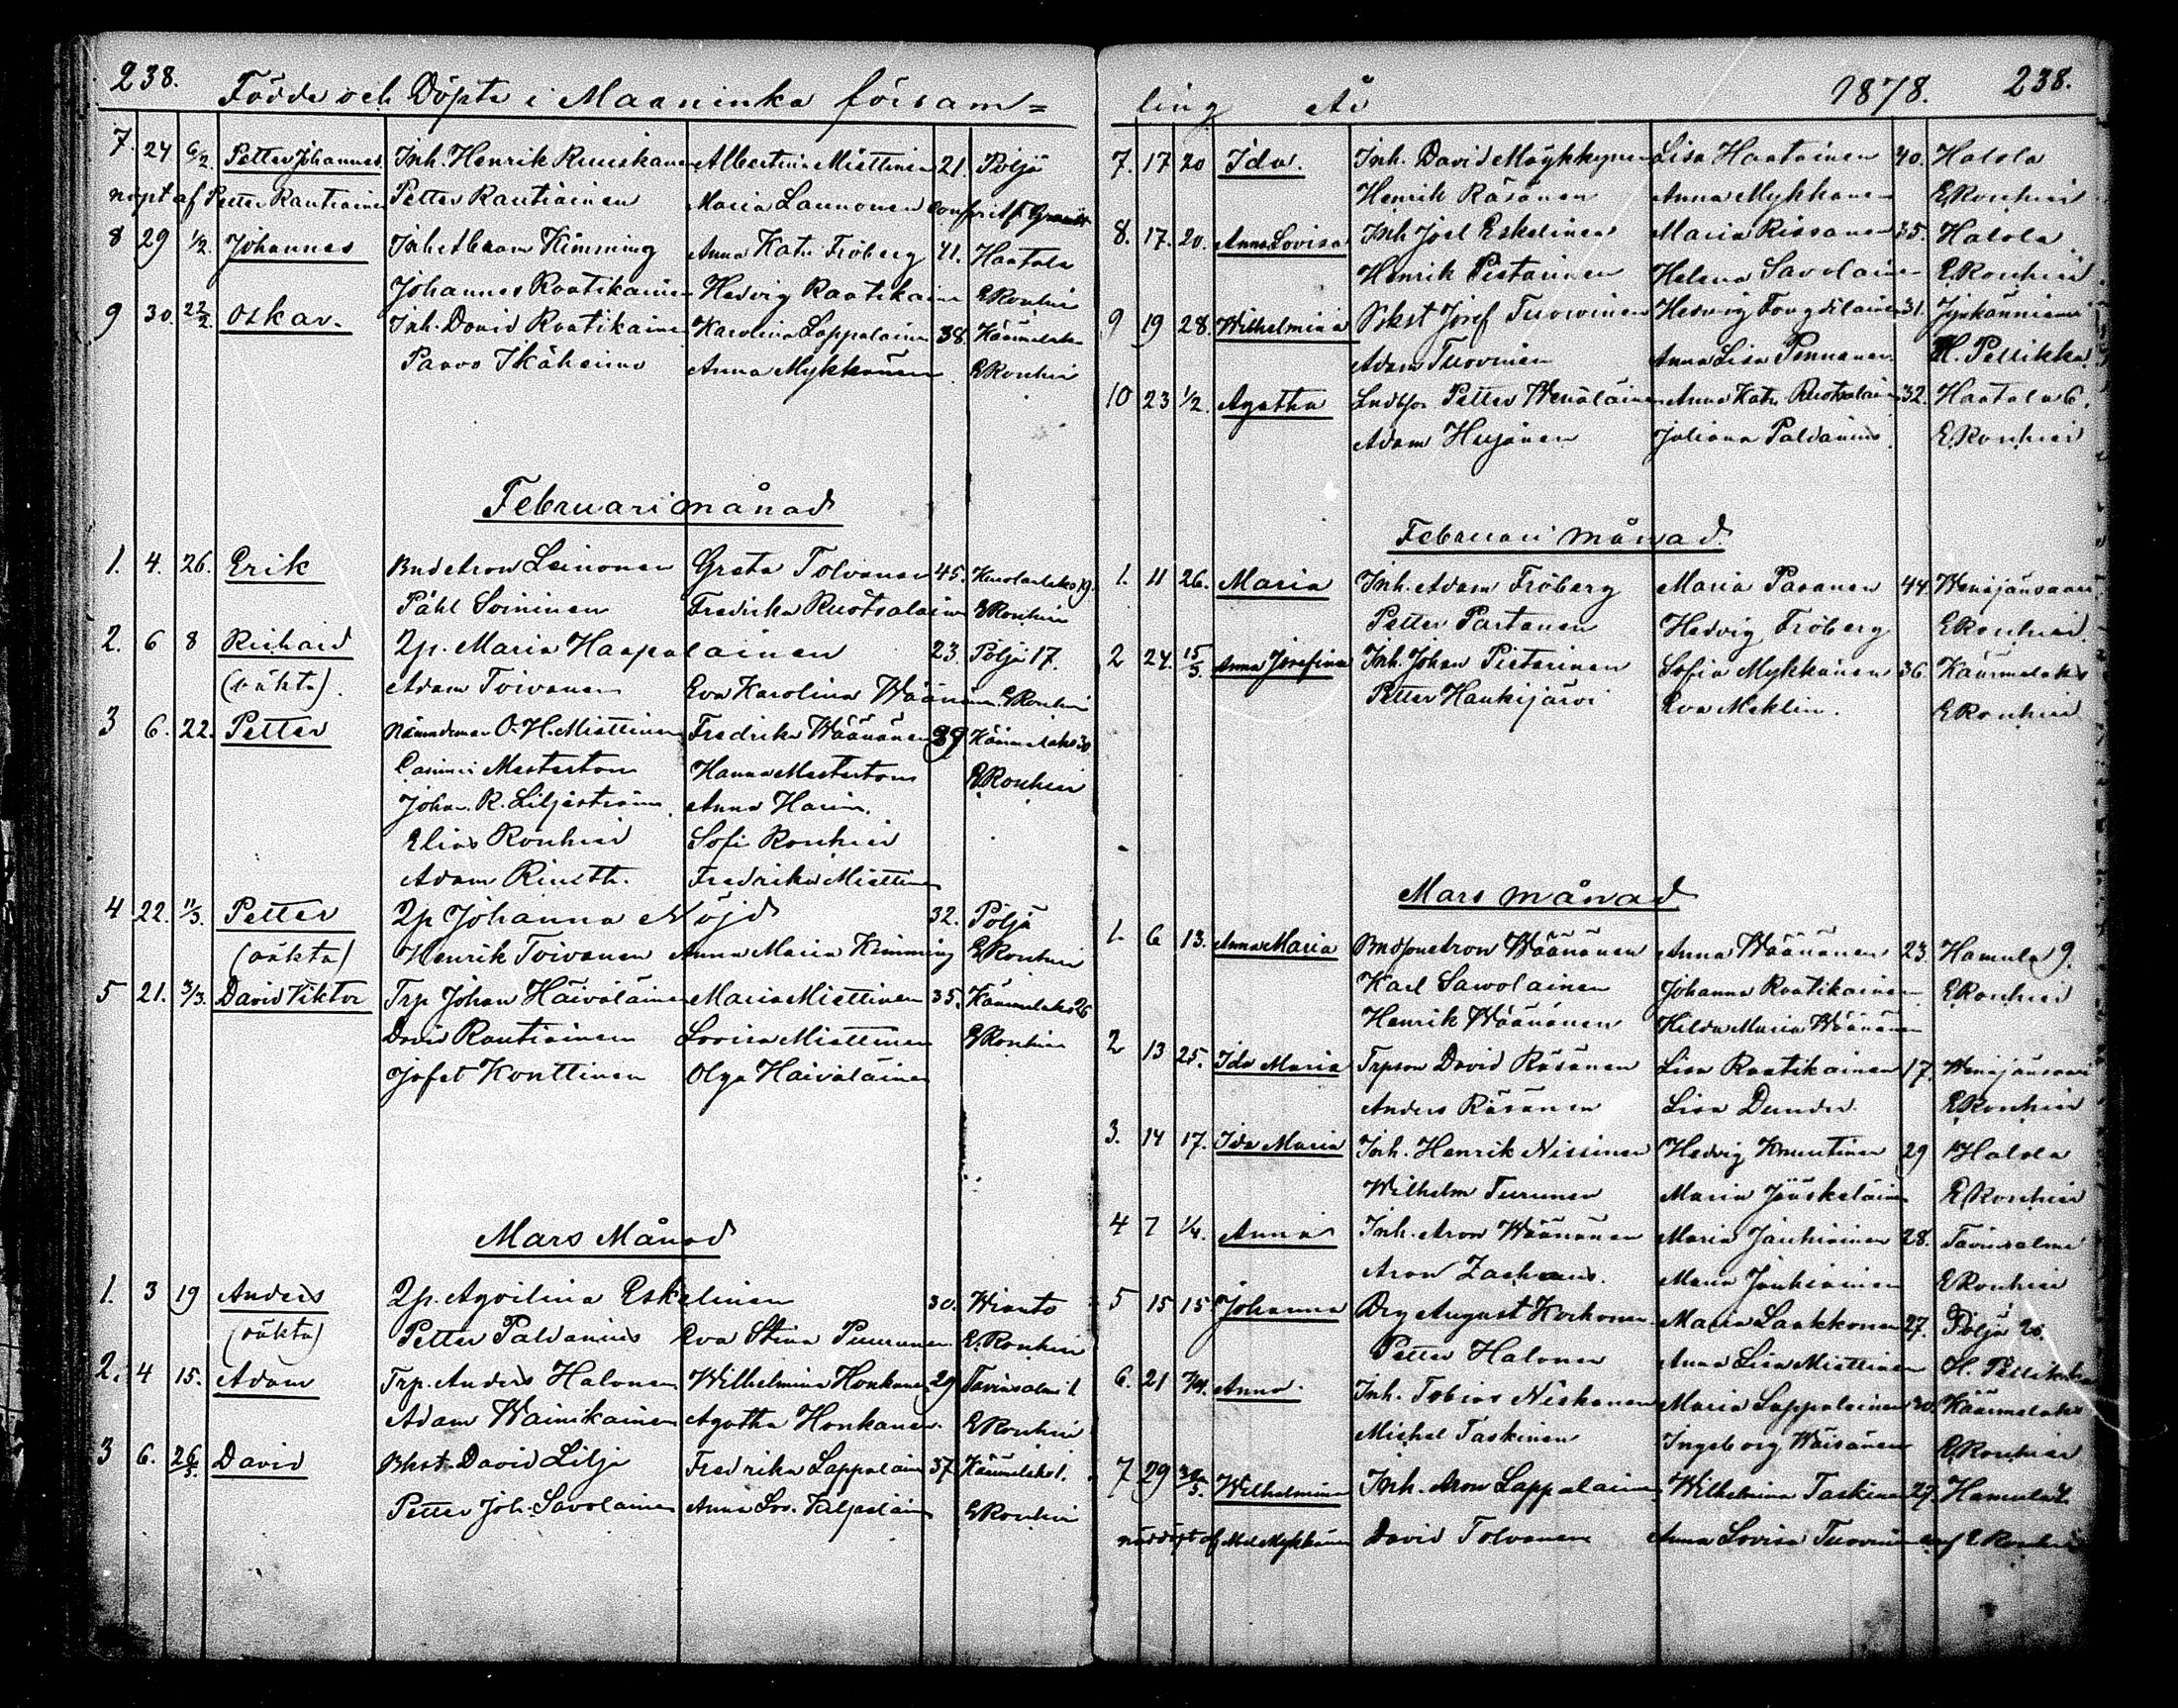 238.
Födde och Döpte i Maaninka försam=
7. 24 6/2. Petter Johannes. Inh. Henrik Ruuskanen Albertina Miettinen 21. Pöljä
nöpt af Petter Rautiainen Petter Rautiainen Maria Launonen confri af
8 29 1/2. Johannes Inh Abram Kimming Anna Katr. Fröberg 41. Haatala
Johannes Raatikainen Hedvig Raatikainen E Ronhier
9 30. 22/2. Oskar. Inh. David Raatikainen Karolina Lappalainen 38. Käärmelaks
Paavo Ikäheimo Anna Mykkänen E Ronhier
Februari månad
1. 4. 26. Erik Bnd Aron Leinonen Greta Tolvanen 45. Kurolanlaks 19.
Påhl Soininen Fredrika Ruotsalainen E Ronhier
2. 6 8 Richard Qp. Maria Haapalainen 23. Pöljä 17.
(oäkta). Adam Toivanen Eva Karolina Wäänänen E Ronhier
3 6. 22. Petter Nämndeman O. H. Miettinen Fredrika Wäänänen 39 Käärmelaks 30
Casimir Mesterton Hanna Mesterton E Ronhier
Johan R. Liljeström Anna Harin.
Elias Ronhier Sofi Ronhier
Adam Rinsth. Fredrika Miettinen
4 22. 11/3. Petter Qp Johanna Nöjd 32. Pöljä
(oäkta) Henrik Toivanen Anna Maria Kimming E Ronhier
5 21. 3/3. David Viktor Trp Johan Häiväläinen Maria Miettinen 35. Käärmelaks 26
David Rautiainen Lovisa Miettinen E Ronhier
Jafet Konttinen Olga Häiväläinen
Mars Månad
1. 3 19 Anders Qp. Agvilina Eskelinen 30. Wianto
(oäkta) Petter Paldanius Eva Stina Puurunen E Ronhier
2. 4 15. Adam Trp. Anders Halonen Wilhelmina Honkanen 29 Tavinsalmi 1
Adam Wainikainen Agatha Honkanen. E Ronhier
3 6. 26/5. David Bkst. David Lilja Fredrika Lappalainen 37. Käärmelaks 1.
Petter Joh. Savolainen Anna Lov. Väljäläinen E Ronhier
ling År 1878. 238.
7. 17 20 Ida. Inh. David Möykkynen Lisa Haatainen 40. Halola
Henrik Räsänen Anna Mykkänen E Ronhier
8. 17. 20. Anna Lovisa Inh Joel Eskelinen Maria Rissanen 35. Halola
Henrik Pietarinen Helena Savolainen E Ronhier
9 19 28. Wilhelmina Bkst Josef Tuovinen Hedvig 31. Jynkänniemi
Adam Tuovinen Anna Lisa Pennanen H. Pellikka.
10 23 1/2. Agatha Lndbr. Petter Wenäläinen Anna Katr. Ruotsalainen 32. Haatala 6.
Adam Hujanen Juliana Paldanius E Ronhier
Februari månad.
1. 11 26. Maria Inh. Adam Fröberg Maria Pasanen 44. Wenäjänsaari
Petter Partanen Hedvig Fröberg E Ronhier.
2 24. 15/5. Anna Josefina Inh. Johan Pietarinen Sofia Mykkänen 36 Käärmelaks
Petter Haukijärvi Eva Meklin. E Ronhier
Mars månad
1. 6 13. Anna Maria Bndson Aron Wäänänen Anna Wäänänen 23. Hamula 9.
Karl Sawolainen Johanna Raatikainen E Ronhier
Henrik Wäänänen Hilda Maria Wäänänen
2 13 25. Ida Maria Trpson David Räsänen Lisa Raatikainen 17. Wenäjänsaari
Anders Räsänen Lisa Dunder. E Ronhier
3. 14 17. Ida Maria Inh. Henrik Nissinen Hedvig Knuutinen 29 Halola
Wilhelm Turunen Maria Jääskeläinen E Ronhier
4 7 1/4. Anna Inh. Aron Wäänänen Maria Jauhiainen 28. Tavinsalmi
Aron Zachæus. Maria Jauhiainen E Ronhier
5 15 15 Johanna Drg August Korhonen Maria Laakkonen 27. Pöljä 20.
Petter Halonen Anna Lisa Miettinen H. Pellikka
6. 21 7/4. Anna. Inh. Tobias Niskanen Maria Lappalainen 30. Käärmelaks
Michel Taskinen Ingeborg Wäisänen E Ronhier
7 29 Wilhelmina Inh. Aron Lappalainen Wilhelmina Taskinen 27. Hamula 4.
nöddöpt af Mykkänen David Tolvanen Anna Lovisa Tuovinen E Ronhier